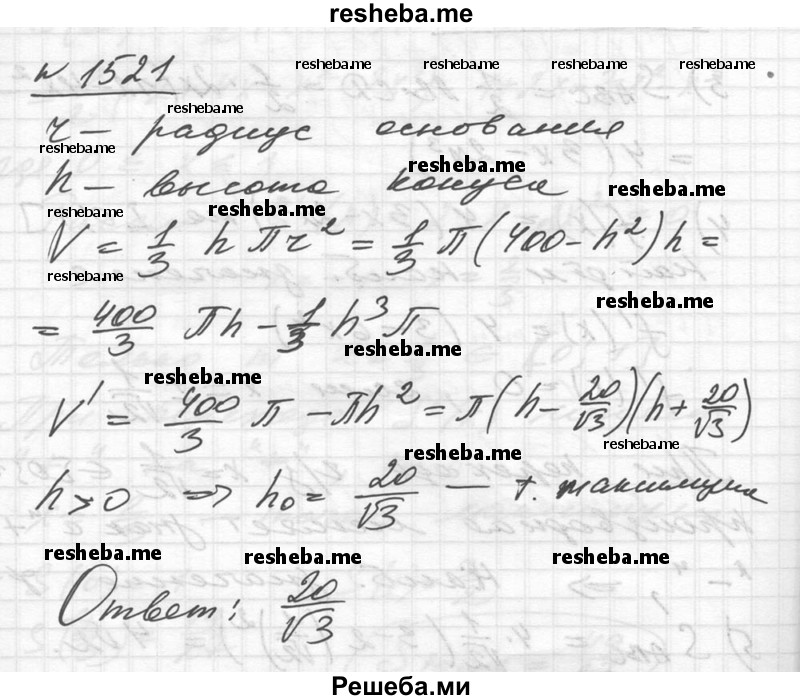 resheba.me
№ 1521
resheba.me resheba.me resheba.me resheba.me
resheba.me
r — радиус основания
resheba.me
resheba.me
h — высота конуса
resheba.me
resheba.me resheba.me
V = 1/3 h π r² = 1/3 π (400 - h²) h =
resheba.me
resheba.me
= 400/3 πh - 1/3 h³ π
resheba.me
resheba.me
V' = 400/3 π - πh² = π (h - 20/√3)(h + 20/√3)
resheba.me
resheba.me
h > 0 ⇒ h₀ = 20/√3 — т. максимума
resheba.me resheba.me resheba.me
Ответ: 20/√3
Решеба.ми